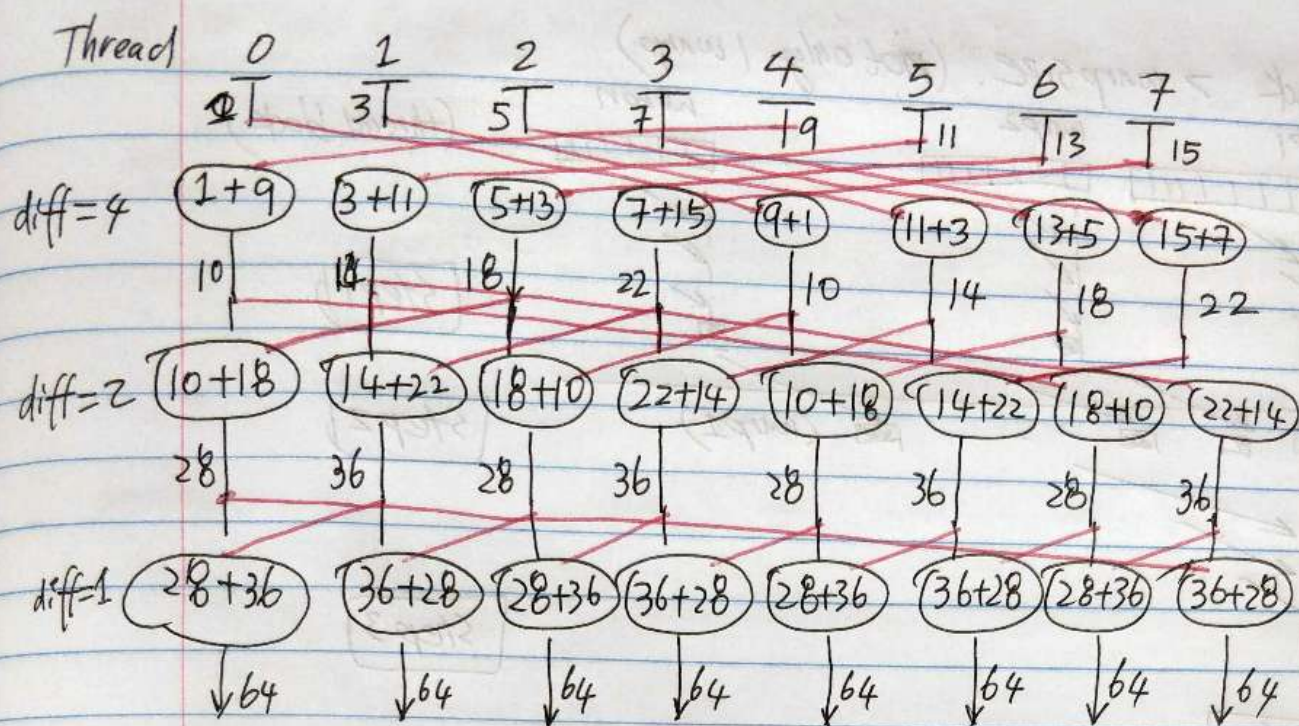 Thread 0 1 2 3 4 5 6 7
1 3 5 7 9 11 13 15
diff=4 1+9 3+11 5+13 7+15 9+1 11+3 13+5 15+7
10 14 18 22 10 14 18 22
diff=2 10+18 14+22 18+10 22+14 10+18 14+22 18+10 22+14
28 36 28 36 28 36 28 36
diff=1 28+36 36+28 28+36 36+28 28+36 36+28 28+36 36+28
64 64 64 64 64 64 64 64